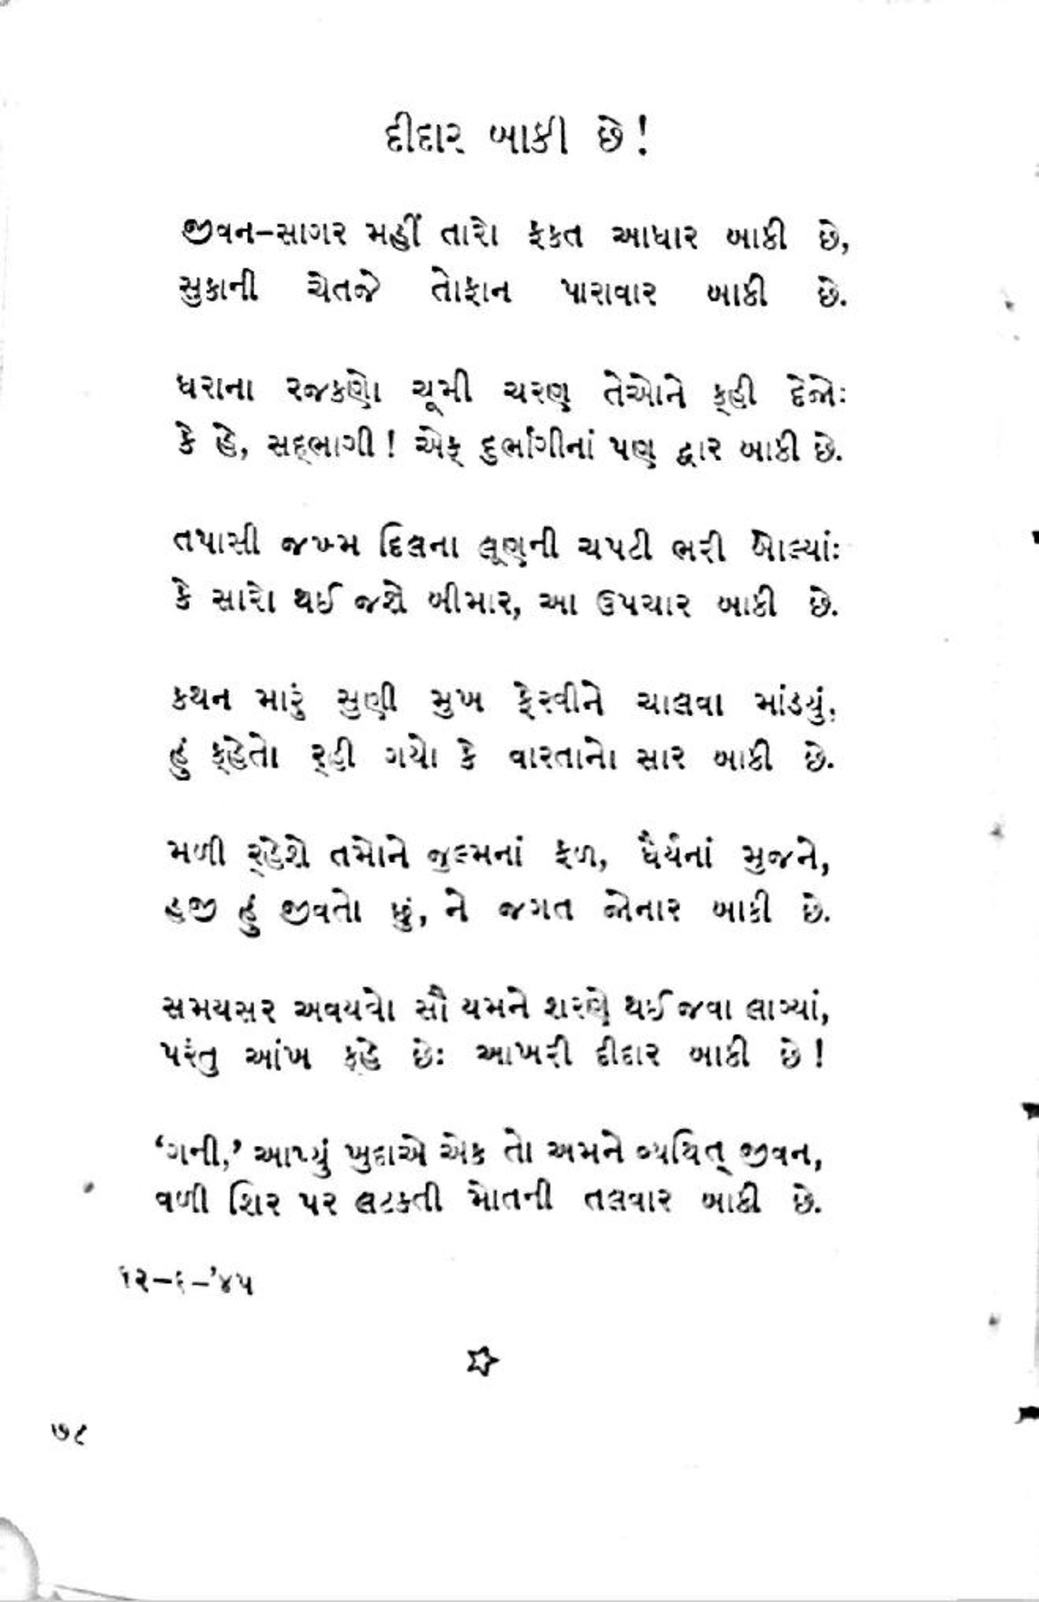 દીદાર બાકી છે!
જીવન-સાગર મહીં તારો ફકત આધાર બાકી છે,
સુકાની ચેતજે તોફાન પારાવાર બાકી છે.
ધરાના રજકણો ચૂમી ચરણ તેઓને ક્‌હી દેજોઃ
કે હે, સદ્‌ભાગી! એક્ દુર્ભાગીનાં પણ દ્વાર બાકી છે.
તપાસી જખ્મ દિલના લૂણની ચપટી ભરી બોલ્યાંઃ
કે સારો થઈ જશે બીમાર, આ ઉપચાર બાકી છે.
કથન મારું સુણી મુખ ફેરવીને ચાલવા માંડ્યું,
હું ક્‌હેતો ર્‌હી ગયો કે વારતાનો સાર બાકી છે.
મળી ર્‌હેશે તમોને જુલ્મનાં ફળ, ધૈર્યનાં મુજને,
હજી હું જીવતો છું, ને જગત જોનાર બાકી છે.
સમયસર અવયવો સૌ યમને શરણે થઈ જવા લાગ્યાં,
પરંતુ આંખ ક્‌હે છેઃ આખરી દીદાર બાકી છે!
‘ગની,’ આપ્યું ખુદાએ એક તો અમને વ્યથિત્ જીવન,
વળી શિર પર લટકતી મોતની તલવાર બાકી છે.
૧૨-૬-’૪૫
૭૮